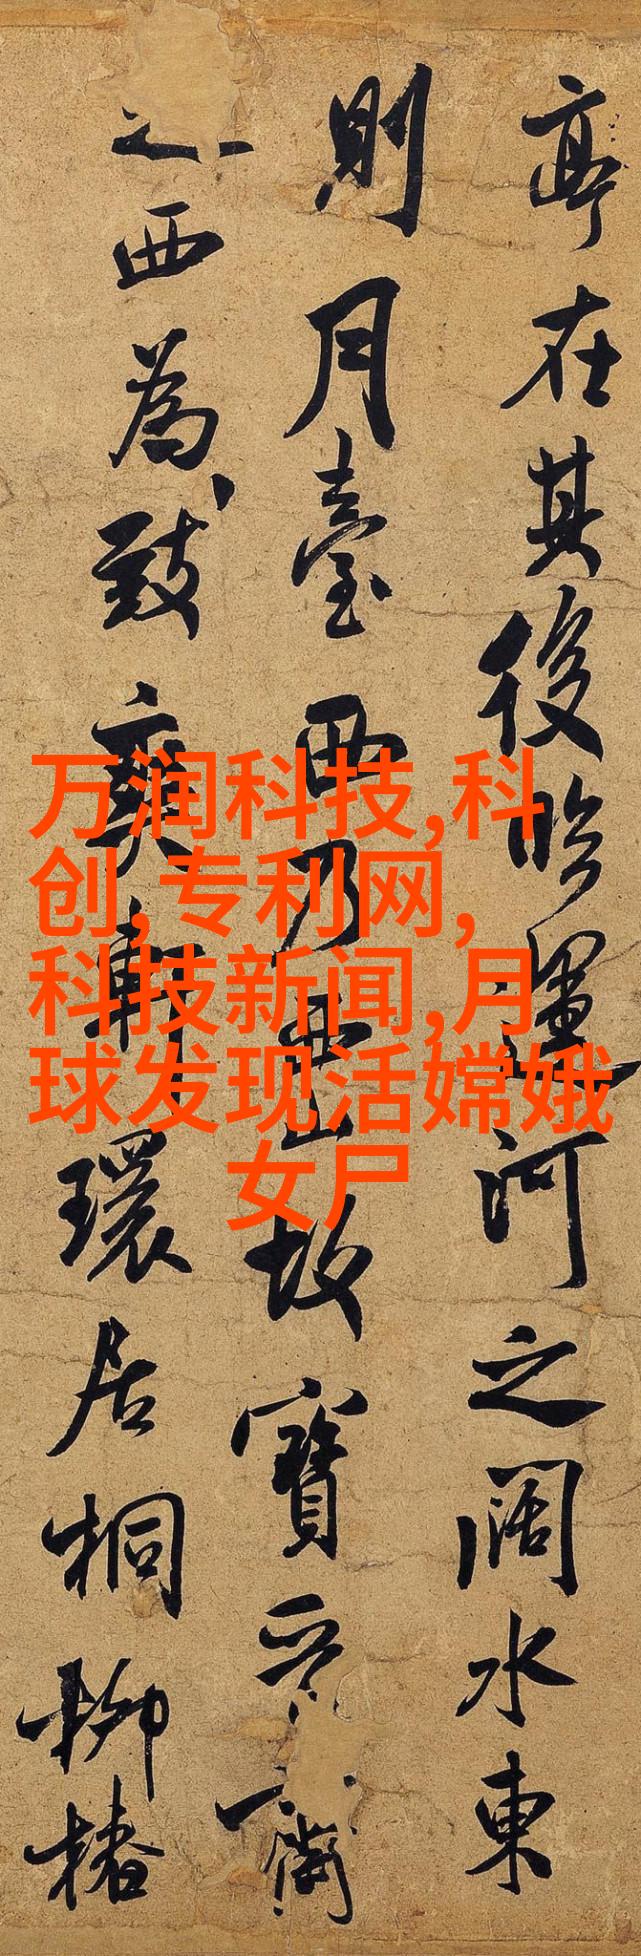 亭在其後臨運河之闊水東
則月臺西乃西山故寶晉齋
之西為致爽軒環居桐柳椿
万润科技,科
创,专利网,
科技新闻,月
球发现活嫦娥
女尸